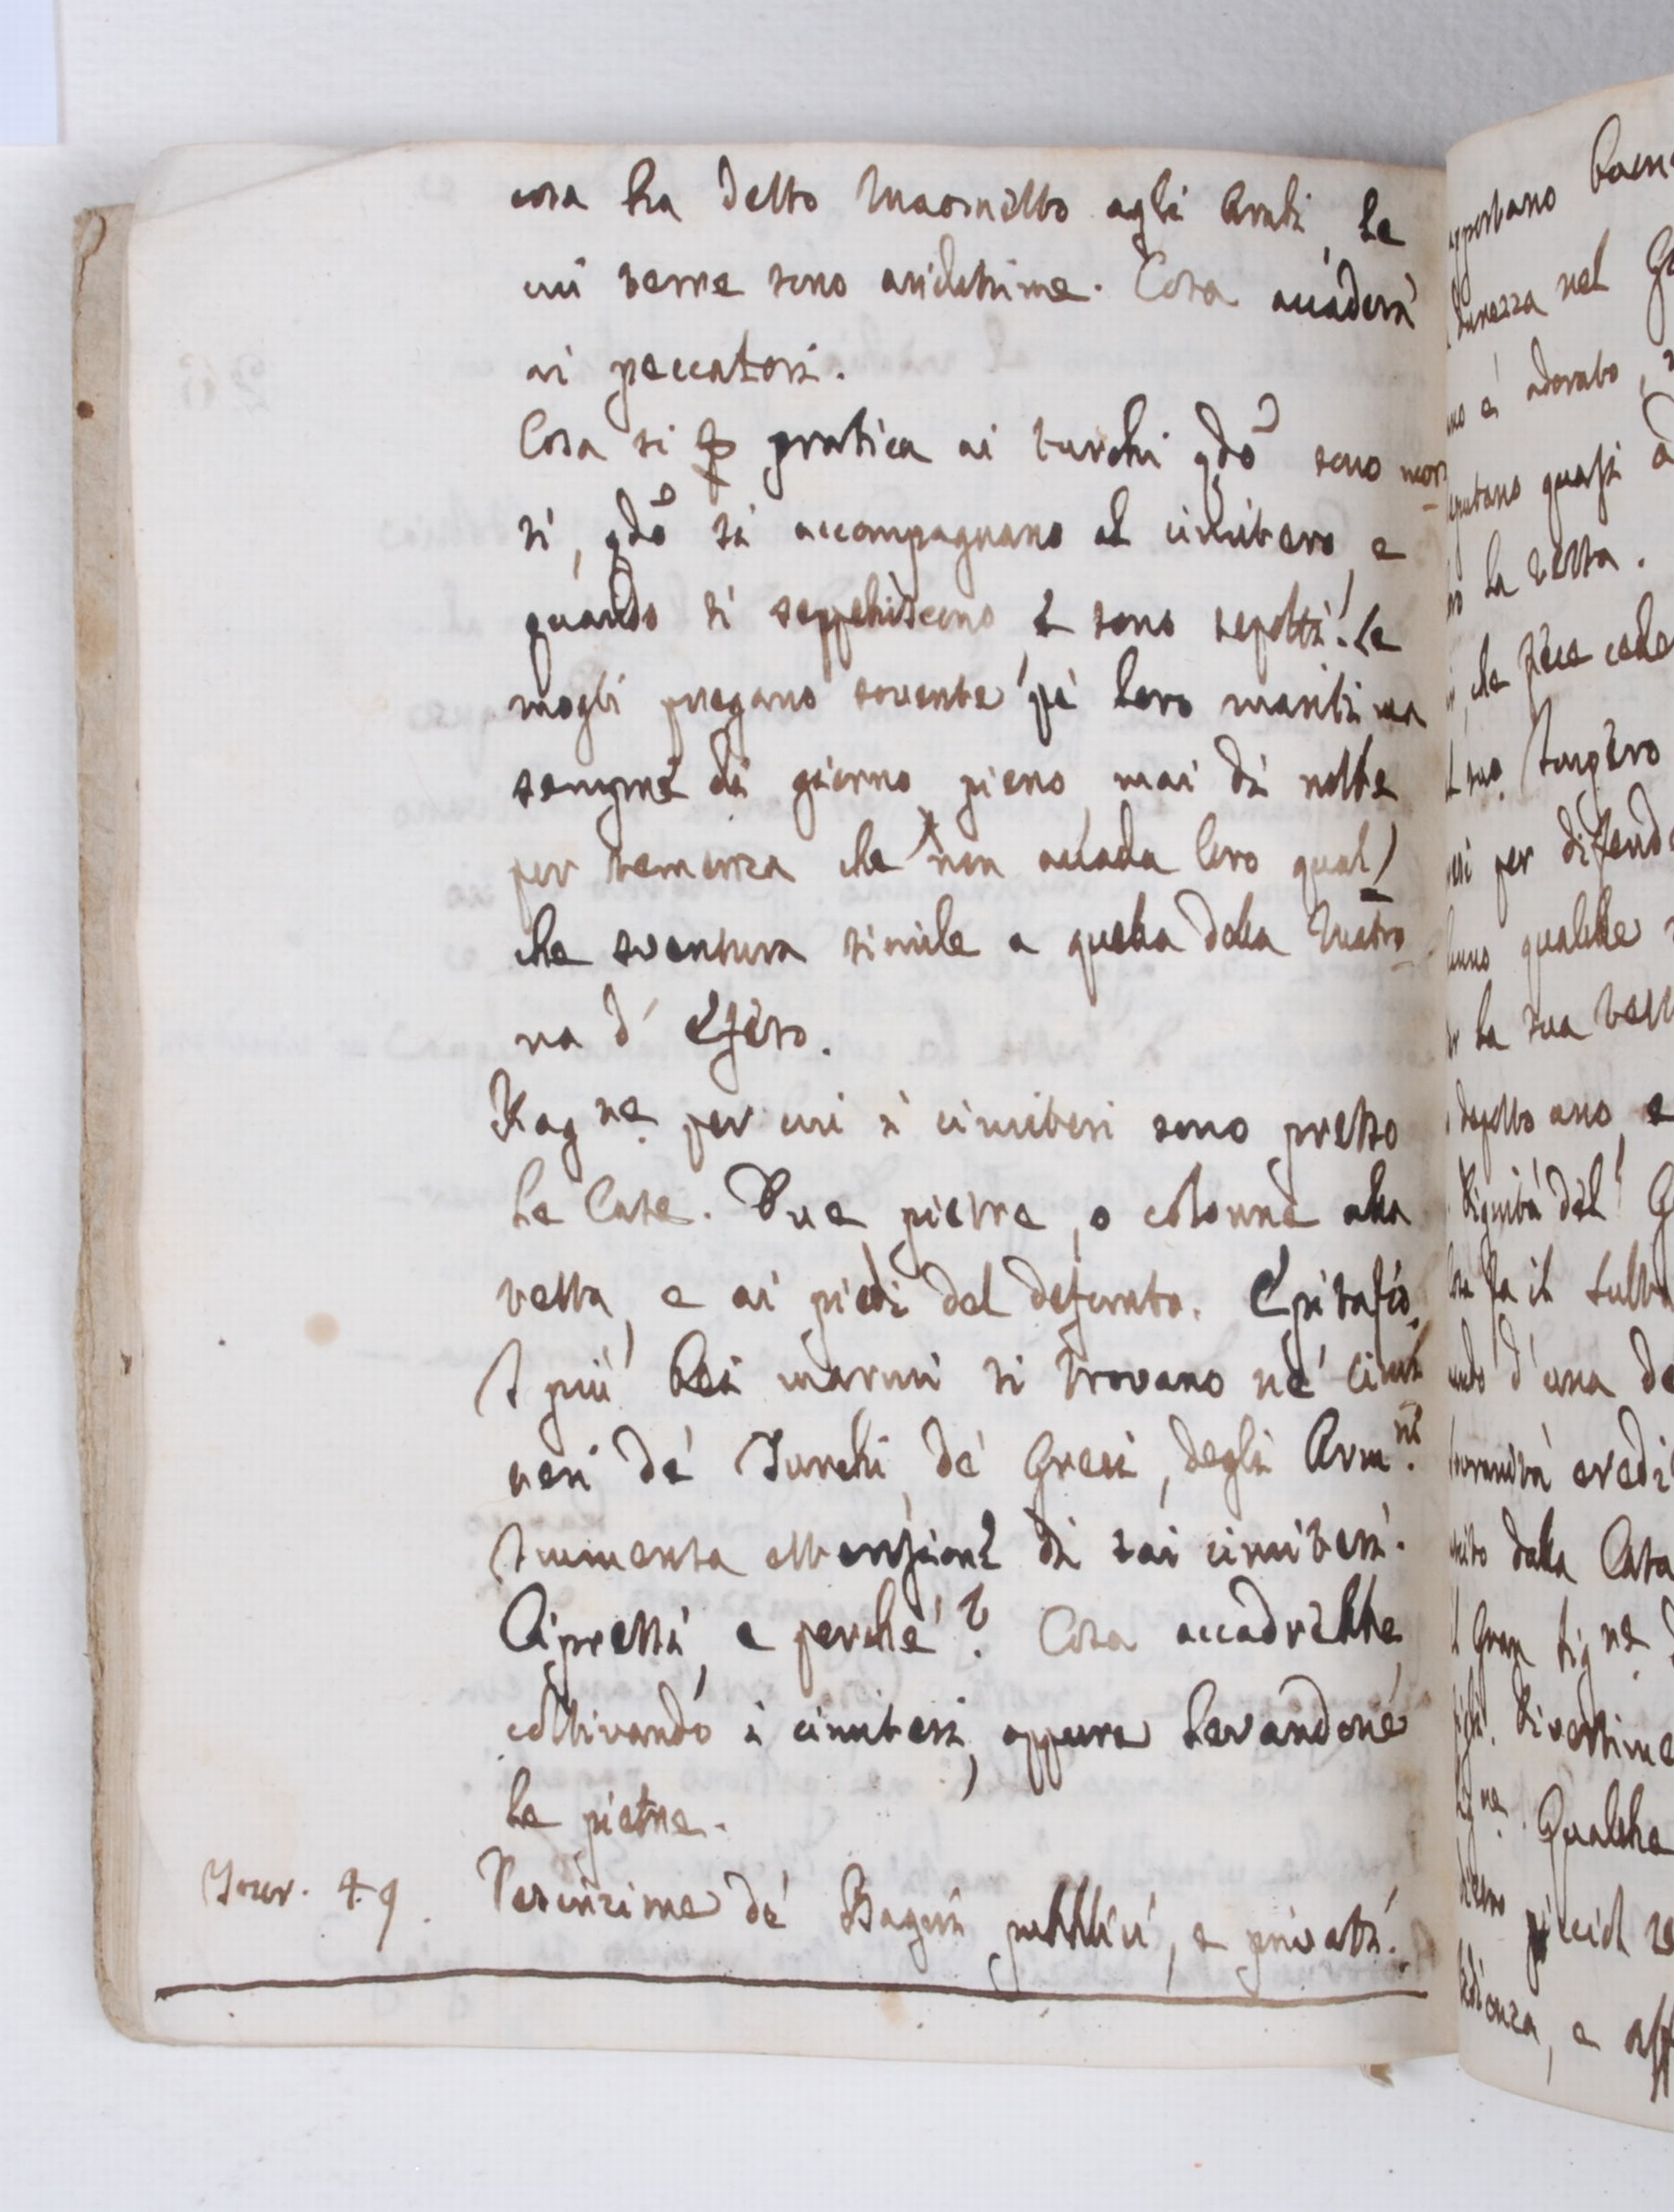 cosa ha detto Maometto agli Arabi, le
cui terre sono aridissime. Cosa accaderà
ai peccatori.
Cosa si pratica ai turchi qdo sono mor-
ti, qdo si accompagnano al cimitero, e
quando si seppeliscono, e sono sepolti. Le
mogli pregano sovente pe' loro mariti ma
sempre di giorno pieno, mai di notte
per temenza che non accada loro qual
che sventura simile a quella della Matro-
na d' Efeso.
Ragne. per cui i cimiteri sono presso
le Case. Due pietre, o colonne alla
testa, e ai piedi del defunto. Epitafio.
I più bei marmi si trovano ne' cimi
teri de' Turchi, de' Greci, degli Armni.
Immensa estensione di tai cimiteri.
Cipressi, e perchè? Cosa accadrebbe
coltivando i cimiteri, oppure levandone
le pietre.
Tour. 49. Descrizione de' Bagni pubblici, e privati.
portano
durezza nel
adorato,
reputano quasi
la testa.
che
suo Impero
per difende
qualche
la sua
e
Dignità del G
fa il Sulta
d'una
eredi
dalla Casa
Gran Sigre.
Divertime
Qualche
e